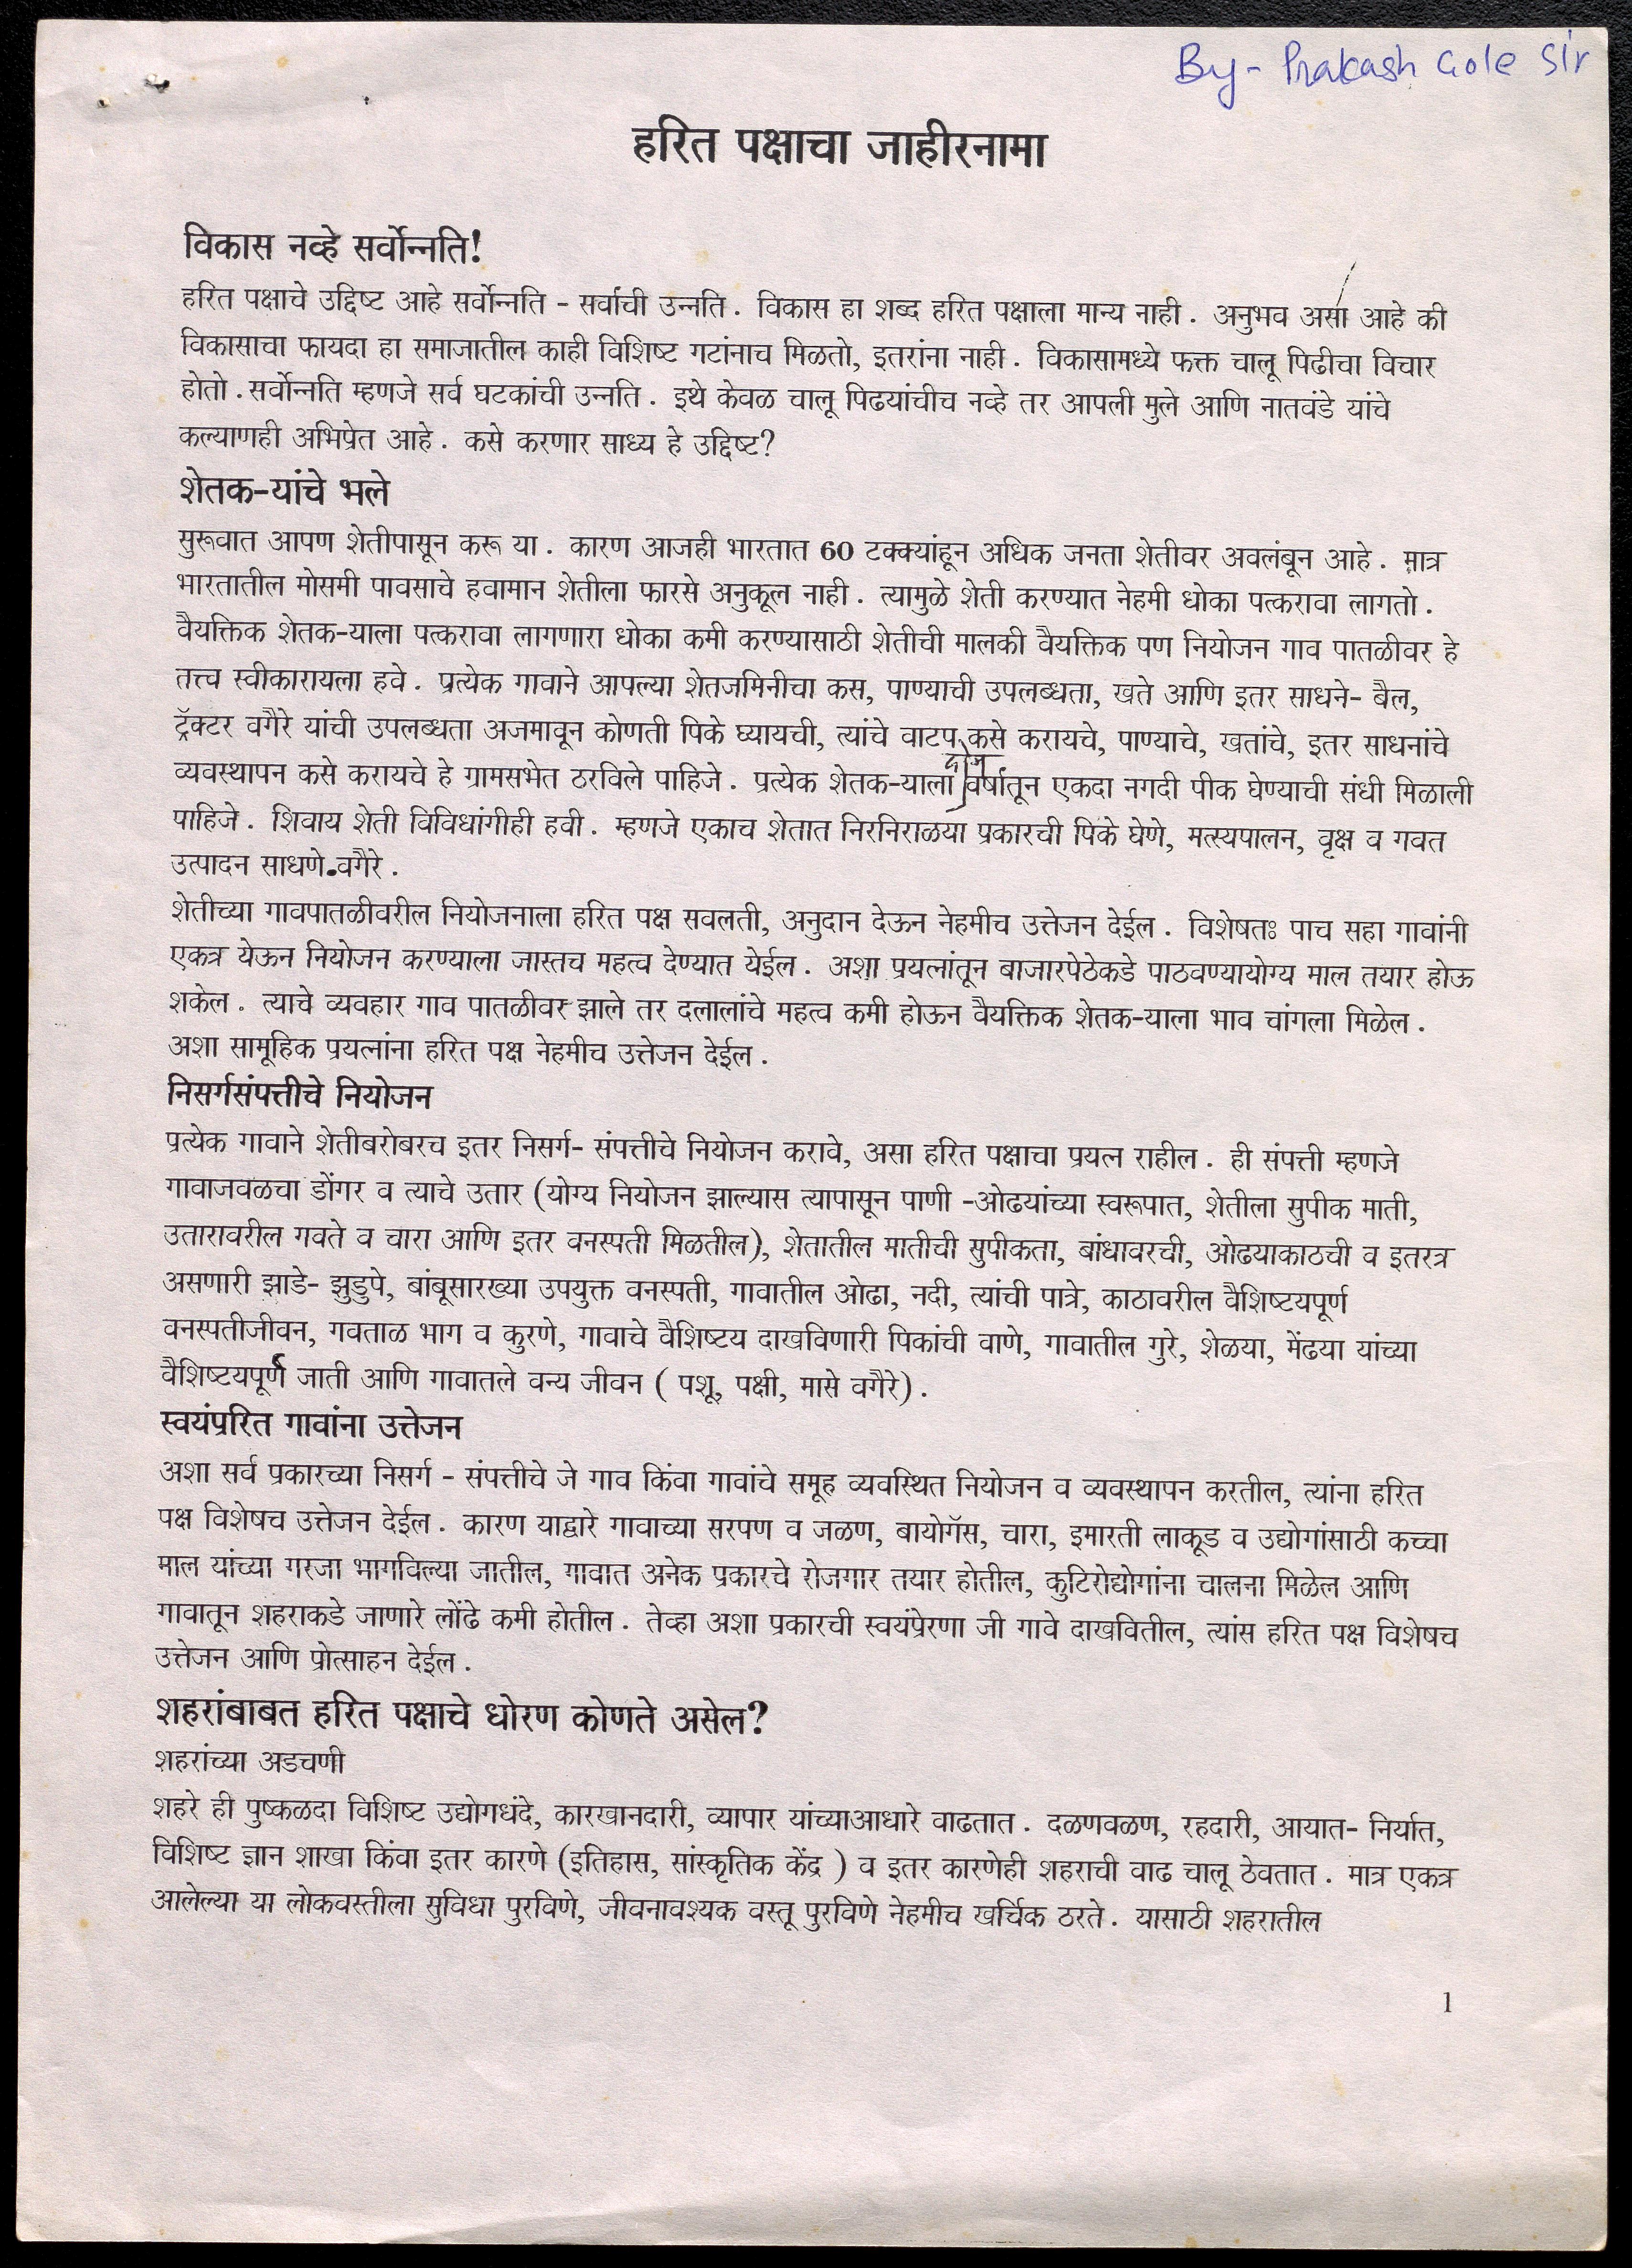 By- Prakash Gole Sir
हरित पक्षाचा जाहीरनामा
विकास नव्हे सर्वोन्नति!
हरित पक्षाचे उद्दिष्ट आहे सर्वोन्नति - सर्वांची उन्नति. विकास हा शब्द हरित पक्षाला मान्य नाही. अनुभव असा आहे की
विकासाचा फायदा हा समाजातील काही विशिष्ट गटांनाच मिळतो, इतरांना नाही. विकासामध्ये फक्त चालू पिढीचा विचार
होतो. सर्वोन्नति म्हणजे सर्व घटकांची उन्नति. इथे केवळ चालू पिढयांचीच नव्हे तर आपली मुले आणि नातवंडे यांचे
कल्याणही अभिप्रेत आहे. कसे करणार साध्य हे उद्दिष्ट?
शेतक-यांचे भले
सुरूवात आपण शेतीपासून करू या. कारण आजही भारतात 60 टक्क्यांहून अधिक जनता शेतीवर अवलंबून आहे. मात्र
भारतातील मोसमी पावसाचे हवामान शेतीला फारसे अनुकूल नाही. त्यामुळे शेती करण्यात नेहमी धोका पत्करावा लागतो.
वैयक्तिक शेतक-याला पत्करावा लागणारा धोका कमी करण्यासाठी शेतीची मालकी वैयक्तिक पण नियोजन गाव पातळीवर हे
तत्त्व स्वीकारायला हवे. प्रत्येक गावाने आपल्या शेतजमिनीचा कस, पाण्याची उपलब्धता, खते आणि इतर साधने- बैल,
ट्रॅक्टर वगैरे यांची उपलब्धता अजमावून कोणती पिके घ्यायची, त्यांचे वाटप कसे करायचे, पाण्याचे, खतांचे, इतर साधनांचे
व्यवस्थापन कसे करायचे हे ग्रामसभेत ठरविले पाहिजे. प्रत्येक शेतक-याला दोन वर्षातून एकदा नगदी पीक घेण्याची संधी मिळाली
पाहिजे. शिवाय शेती विविधांगीही हवी. म्हणजे एकाच शेतात निरनिराळया प्रकारची पिके घेणे, मत्स्यपालन, वृक्ष व गवत
उत्पादन साधणे.वगैरे.
शेतीच्या गावपातळीवरील नियोजनाला हरित पक्ष सवलती, अनुदान देऊन नेहमीच उत्तेजन देईल. विशेषतः पाच सहा गावांनी
एकत्र येऊन नियोजन करण्याला जास्तच महत्व देण्यात येईल. अशा प्रयत्नांतून बाजारपेठेकडे पाठवण्यायोग्य माल तयार होऊ
शकेल. त्याचे व्यवहार गाव पातळीवर झाले तर दलालांचे महत्व कमी होऊन वैयक्तिक शेतक-याला भाव चांगला मिळेल.
अशा सामूहिक प्रयत्नांना हरित पक्ष नेहमीच उत्तेजन देईल.
निसर्गसंपत्तीचे नियोजन
प्रत्येक गावाने शेतीबरोबरच इतर निसर्ग- संपत्तीचे नियोजन करावे, असा हरित पक्षाचा प्रयत्न राहील. ही संपत्ती म्हणजे
गावाजवळचा डोंगर व त्याचे उतार (योग्य नियोजन झाल्यास त्यापासून पाणी -ओढयांच्या स्वरूपात, शेतीला सुपीक माती,
उतारावरील गवते व चारा आणि इतर वनस्पती मिळतील), शेतातील मातीची सुपीकता, बांधावरची, ओढयाकाठची व इतरत्र
असणारी झाडे- झुडुपे, बांबूसारख्या उपयुक्त वनस्पती, गावातील ओढा, नदी, त्यांची पात्रे, काठावरील वैशिष्टयपूर्ण
वनस्पतीजीवन, गवताळ भाग व कुरणे, गावाचे वैशिष्टय दाखविणारी पिकांची वाणे, गावातील गुरे, शेळया, मेंढया यांच्या
वैशिष्टयपूर्ण जाती आणि गावातले वन्य जीवन ( पशू, पक्षी, मासे वगैरे).
स्वयंप्ररित गावांना उत्तेजन
अशा सर्व प्रकारच्या निसर्ग - संपत्तीचे जे गाव किंवा गावांचे समूह व्यवस्थित नियोजन व व्यवस्थापन करतील, त्यांना हरित
पक्ष विशेषच उत्तेजन देईल. कारण याद्वारे गावाच्या सरपण व जळण, बायोगॅस, चारा, इमारती लाकूड व उद्योगांसाठी कच्चा
माल यांच्या गरजा भागविल्या जातील, गावात अनेक प्रकारचे रोजगार तयार होतील, कुटिरोद्योगांना चालना मिळेल आणि
गावातून शहराकडे जाणारे लोंढे कमी होतील. तेव्हा अशा प्रकारची स्वयंप्रेरणा जी गावे दाखवितील, त्यांस हरित पक्ष विशेषच
उत्तेजन आणि प्रोत्साहन देईल.
शहरांबाबत हरित पक्षाचे धोरण कोणते असेल?
शहरांच्या अडचणी
शहरे ही पुष्कळदा विशिष्ट उद्योगधंदे, कारखानदारी, व्यापार यांच्याआधारे वाढतात. दळणवळण, रहदारी, आयात- निर्यात,
विशिष्ट ज्ञान शाखा किंवा इतर कारणे (इतिहास, सांस्कृतिक केंद्र ) व इतर कारणेही शहराची वाढ चालू ठेवतात. मात्र एकत्र
आलेल्या या लोकवस्तीला सुविधा पुरविणे, जीवनावश्यक वस्तू पुरविणे नेहमीच खर्चिक ठरते. यासाठी शहरातील
1